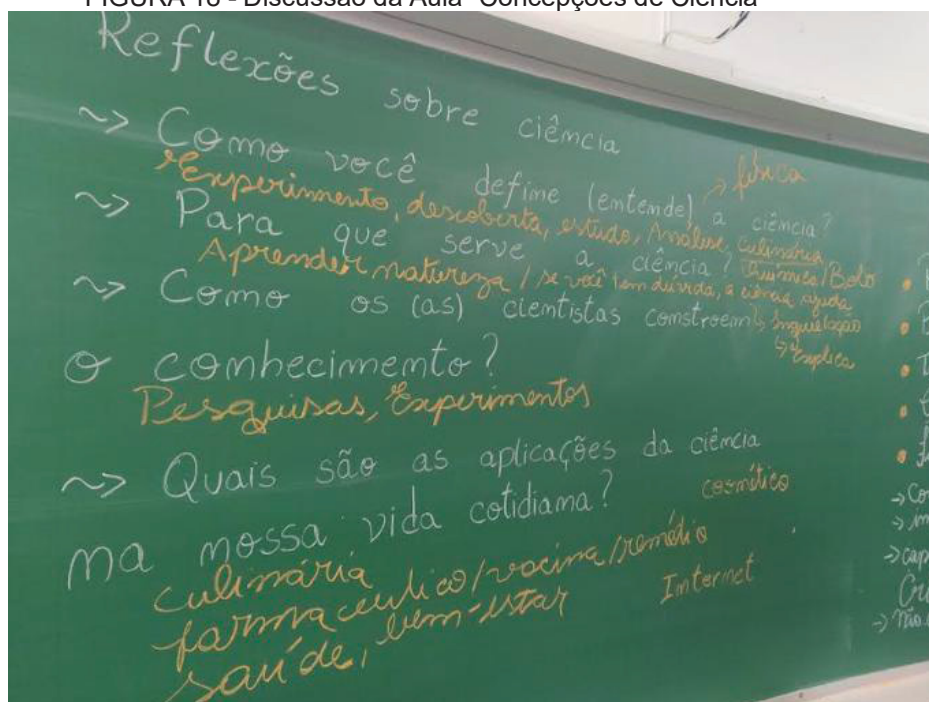 FIGURA 18 - Discussão da Aula "Concepções de Ciência"
Reflexões sobre ciência
~> Como você define (entende) a ciência?
→ física
Experimento, descoberta, estudo, Análise, culinária
~> Para que serve a ciência? Química/Bolo
Aprender natureza / se você tem dúvida, a ciência ajuda
~> Como os (as) cientistas constroem
↳ Inquietação
↳ Explica
o conhecimento?
Pesquisas, Experimentos
~> Quais são as aplicações da ciência
na nossa vida cotidiana? cosmético
culinária
farmacêutico/vacina/remédio
saúde, bem-estar Internet